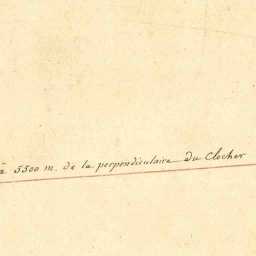 à 5500 m. de la perpendiculaire du Clocher